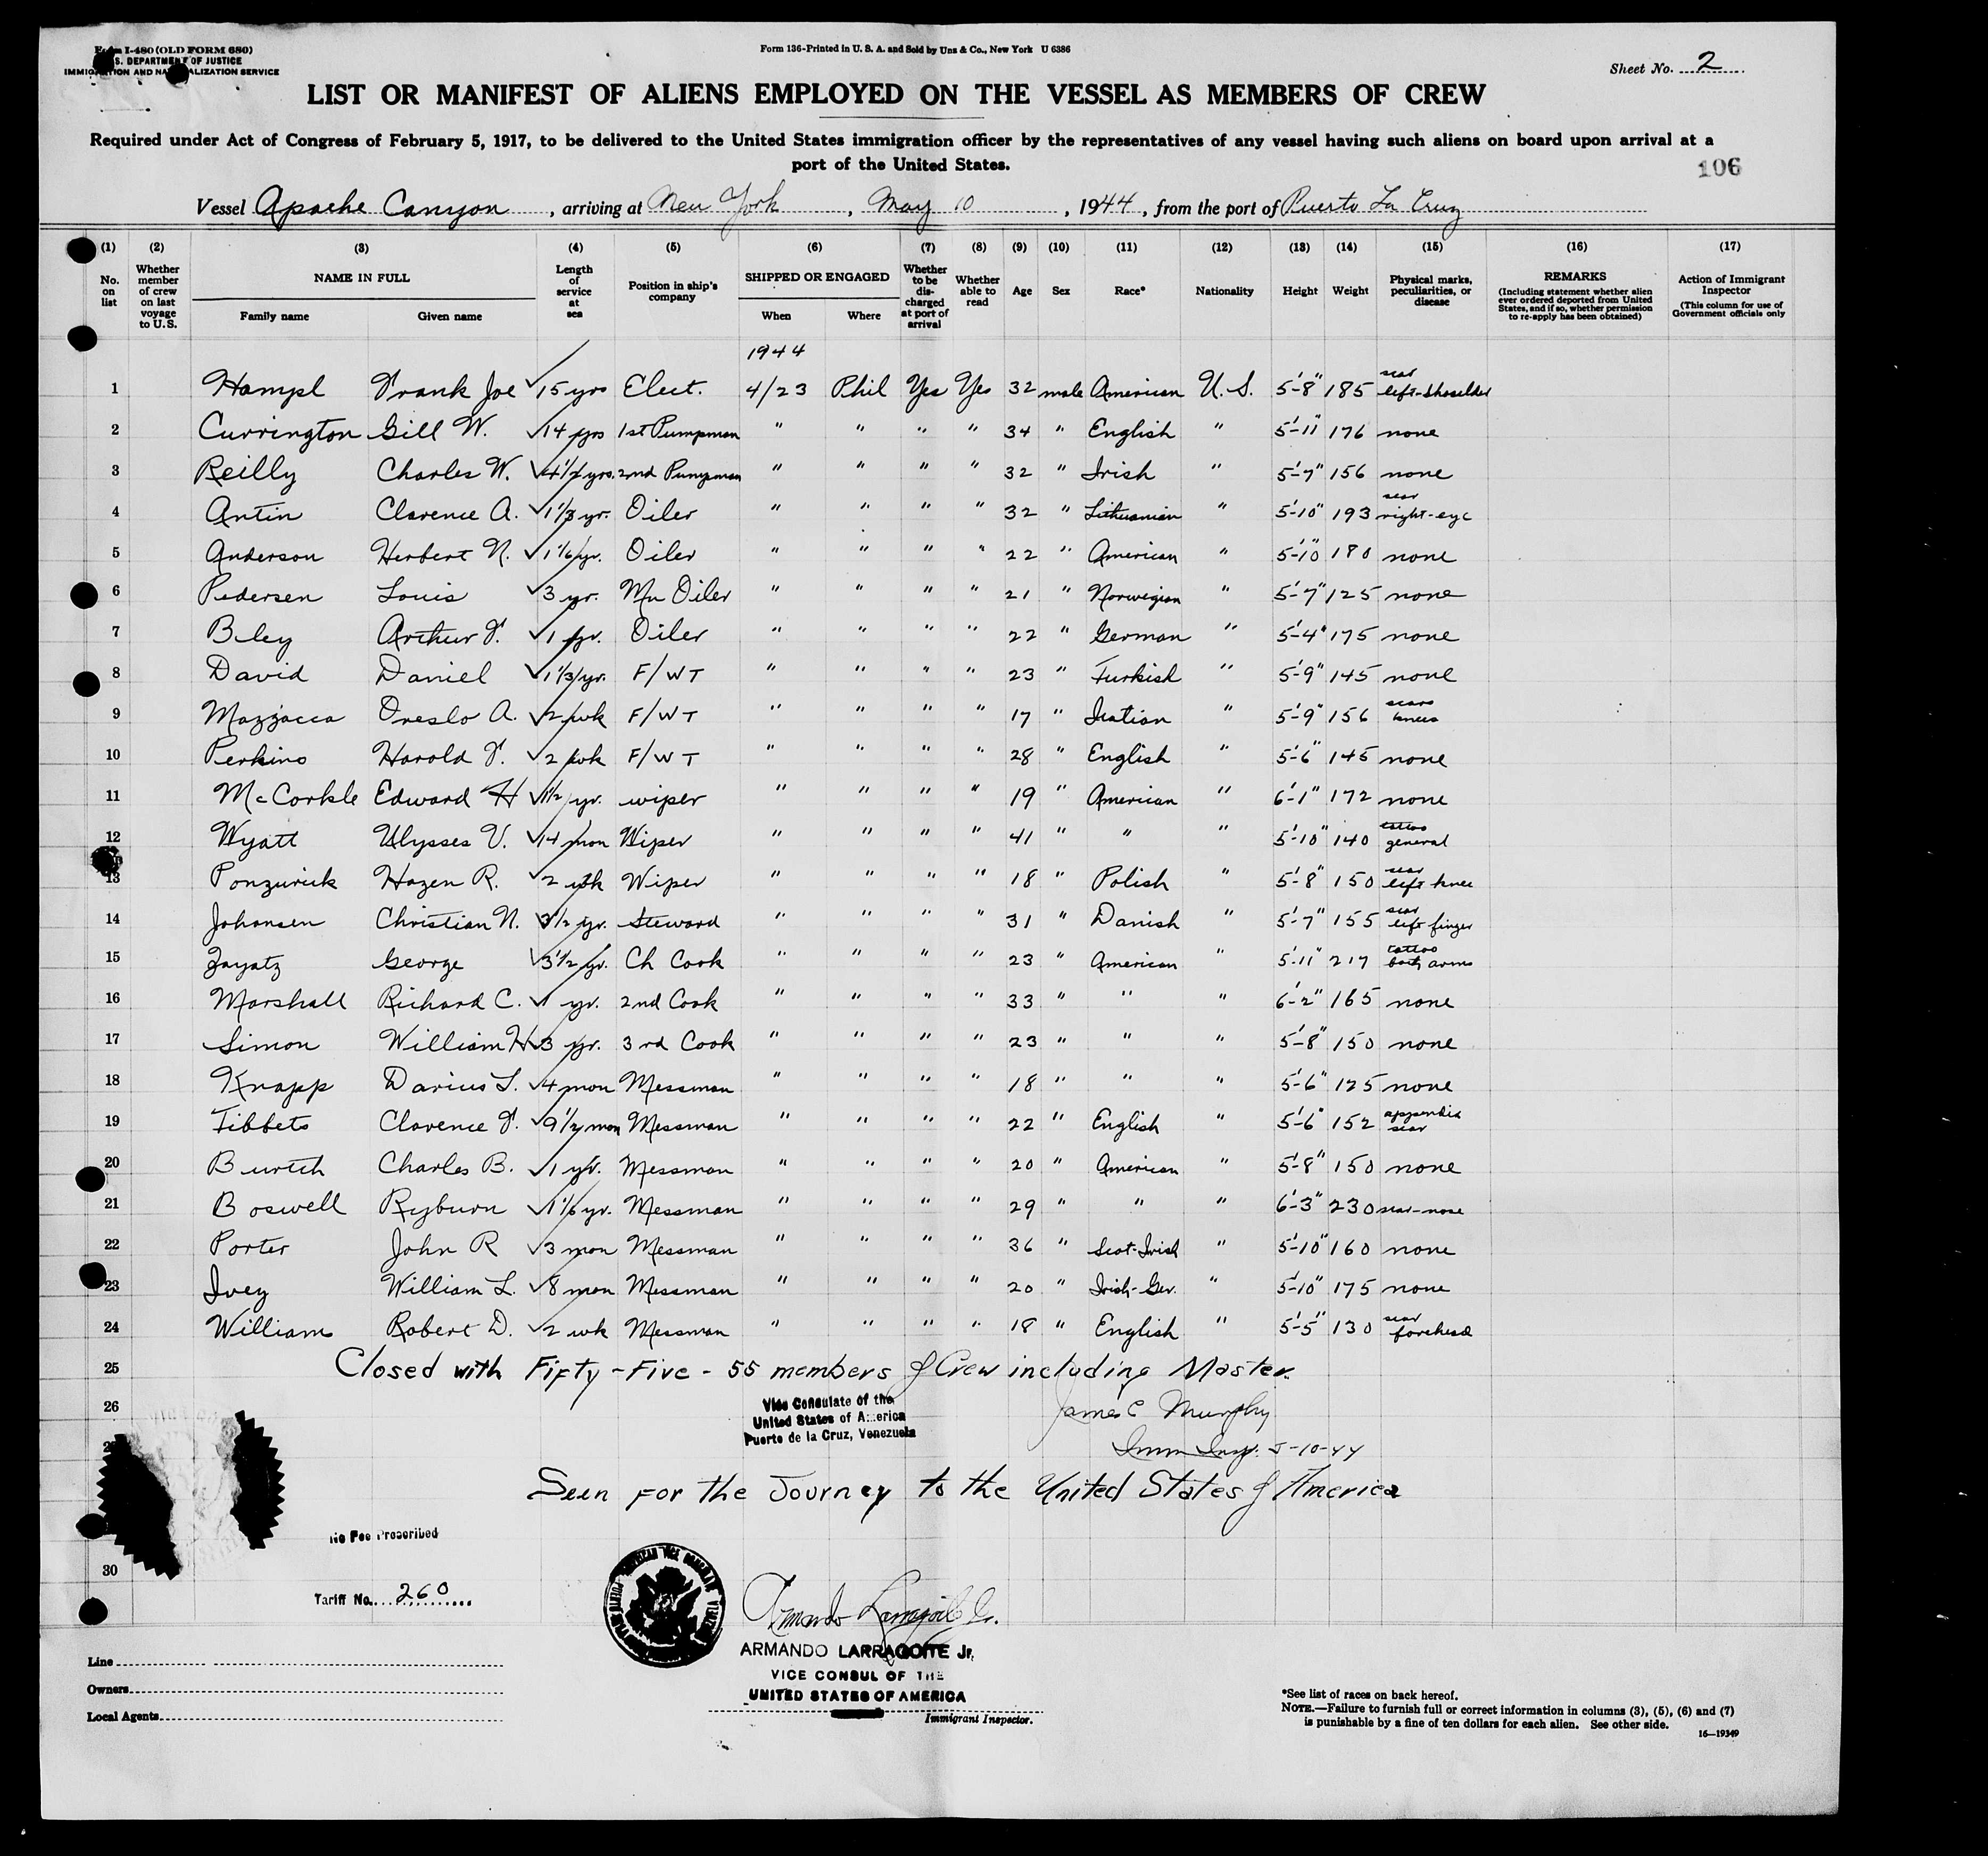 Form I-480 (OLD FORM 680)
U.S. DEPARTMENT OF JUSTICE
IMMIGRATION AND NATURALIZATION SERVICE
Form 136-Printed in U. S. A. and Sold by Unz & Co., New York U 6386
Sheet No. 2
LIST OR MANIFEST OF ALIENS EMPLOYED ON THE VESSEL AS MEMBERS OF CREW
Required under Act of Congress of February 5, 1917, to be delivered to the United States immigration officer by the representatives of any vessel having such aliens on board upon arrival at a
port of the United States.
106
Vessel Apache Canyon, arriving at New York, May 10, 1944, from the port of Puerto La Cruz
(1) (2) (3) (4) (5) (6) (7) (8) (9) (10) (11) (12) (13) (14) (15) (16) (17)
No. on list
Whether member of crew on last voyage to U.S.
NAME IN FULL
Family name Given name
Length of service at sea
Position in ship's company
SHIPPED OR ENGAGED
When Where
Whether to be discharged at port of arrival
Whether able to read
Age
Sex
Race*
Nationality
Height
Weight
Physical marks, peculiarities, or disease
REMARKS
(Including statement whether alien ever ordered deported from United States, and if so, whether permission to re-apply has been obtained)
Action of Immigrant Inspector
(This column for use of Government officials only
1944
1 Hampl Frank Joe 15 yrs Elect. 4/23 Phil Yes Yes 32 male American U. S. 5'-8" 185 scar left-shoulder
2 Currington Gill W. 14 yrs 1st Pumpman " " " " 34 " English " 5'-11" 176 none
3 Reilly Charles W. 4 1/2 yrs. 2nd Pumpman " " " " 32 " Irish " 5'-7" 156 none
4 Antin Clarence A. 1 1/3 yr. Oiler " " " " 32 " Lithuanian " 5'-10" 193 scar right-eye
5 Anderson Herbert N. 1 1/6 yr. Oiler " " " " 22 " American " 5'-10" 180 none
6 Pedersen Louis 3 yr. Mn Oiler " " " " 21 " Norwegian " 5'-7" 125 none
7 Bley Arthur F. 1 yr. Oiler " " " " 22 " German " 5'-4" 175 none
8 David Daniel 1 1/3 yr. F/WT " " " " 23 " Turkish " 5'-9" 145 none
9 Mazzacca Oreslo A. 2 wk F/WT " " " " 17 " Itatian " 5'-9" 156 scars knees
10 Perkins Harold F. 2 wk F/WT " " " " 28 " English " 5'-6" 145 none
11 McCorkle Edward H 1 1/2 yr. wiper " " " " 19 " American " 6'-1" 172 none
12 Wyatt Ulysses V. 14 mon Wiper " " " " 41 " " " 5'-10" 140 tattoo general
13 Ponzurick Hazen R. 2 wk Wiper " " " " 18 " Polish " 5'-8" 150 scar left knee
14 Johansen Christian N. 3 1/2 yr. Steward " " " " 31 " Danish " 5'-7" 155 scar left finger
15 Zayatz George 3 1/2 yr. Ch Cook " " " " 23 " American " 5'-11" 217 tattoo both arms
16 Marshall Richard C. 1 yr. 2nd Cook " " " " 33 " " " 6'-2" 165 none
17 Simon William H 3 yr. 3rd Cook " " " " 23 " " " 5'-8" 150 none
18 Knapp Darius L. 4 mon Messman " " " " 18 " " " 5'-6" 125 none
19 Tibbets Clarence F. 9 1/2 mon Messman " " " " 22 " English " 5'-6" 152 appendix scar
20 Burtch Charles B. 1 yr. Messman " " " " 20 " American " 5'-8" 150 none
21 Boswell Ryburn 1 1/6 yr. Messman " " " " 29 " " " 6'-3" 230 scar-nose
22 Porter John R 3 mon Messman " " " " 36 " Scot-Irish " 5'-10" 160 none
23 Ivey William L. 8 mon Messman " " " " 20 " Irish-Ger. " 5'-10" 175 none
24 Williams Robert D. 2 wk Messman " " " " 18 " English " 5'-5" 130 scar forehead
25 Closed with Fifty-Five - 55 members of Crew including Master.
26 James C Murphy
Imm Insp. 5-10-44
Vice Consulate of the
United States of America
Puerto de la Cruz, Venezuela
Seen for the Journey to the United States of America
No Fee Prescribed
30
Tariff No. 260
Armando Larragoite Jr.
ARMANDO LARRAGOITE Jr.
VICE CONSUL OF THE
UNITED STATES OF AMERICA
Immigrant Inspector.
Line
Owners
Local Agents
*See list of races on back hereof.
NOTE.—Failure to furnish full or correct information in columns (3), (5), (6) and (7)
is punishable by a fine of ten dollars for each alien. See other side.
16—19349